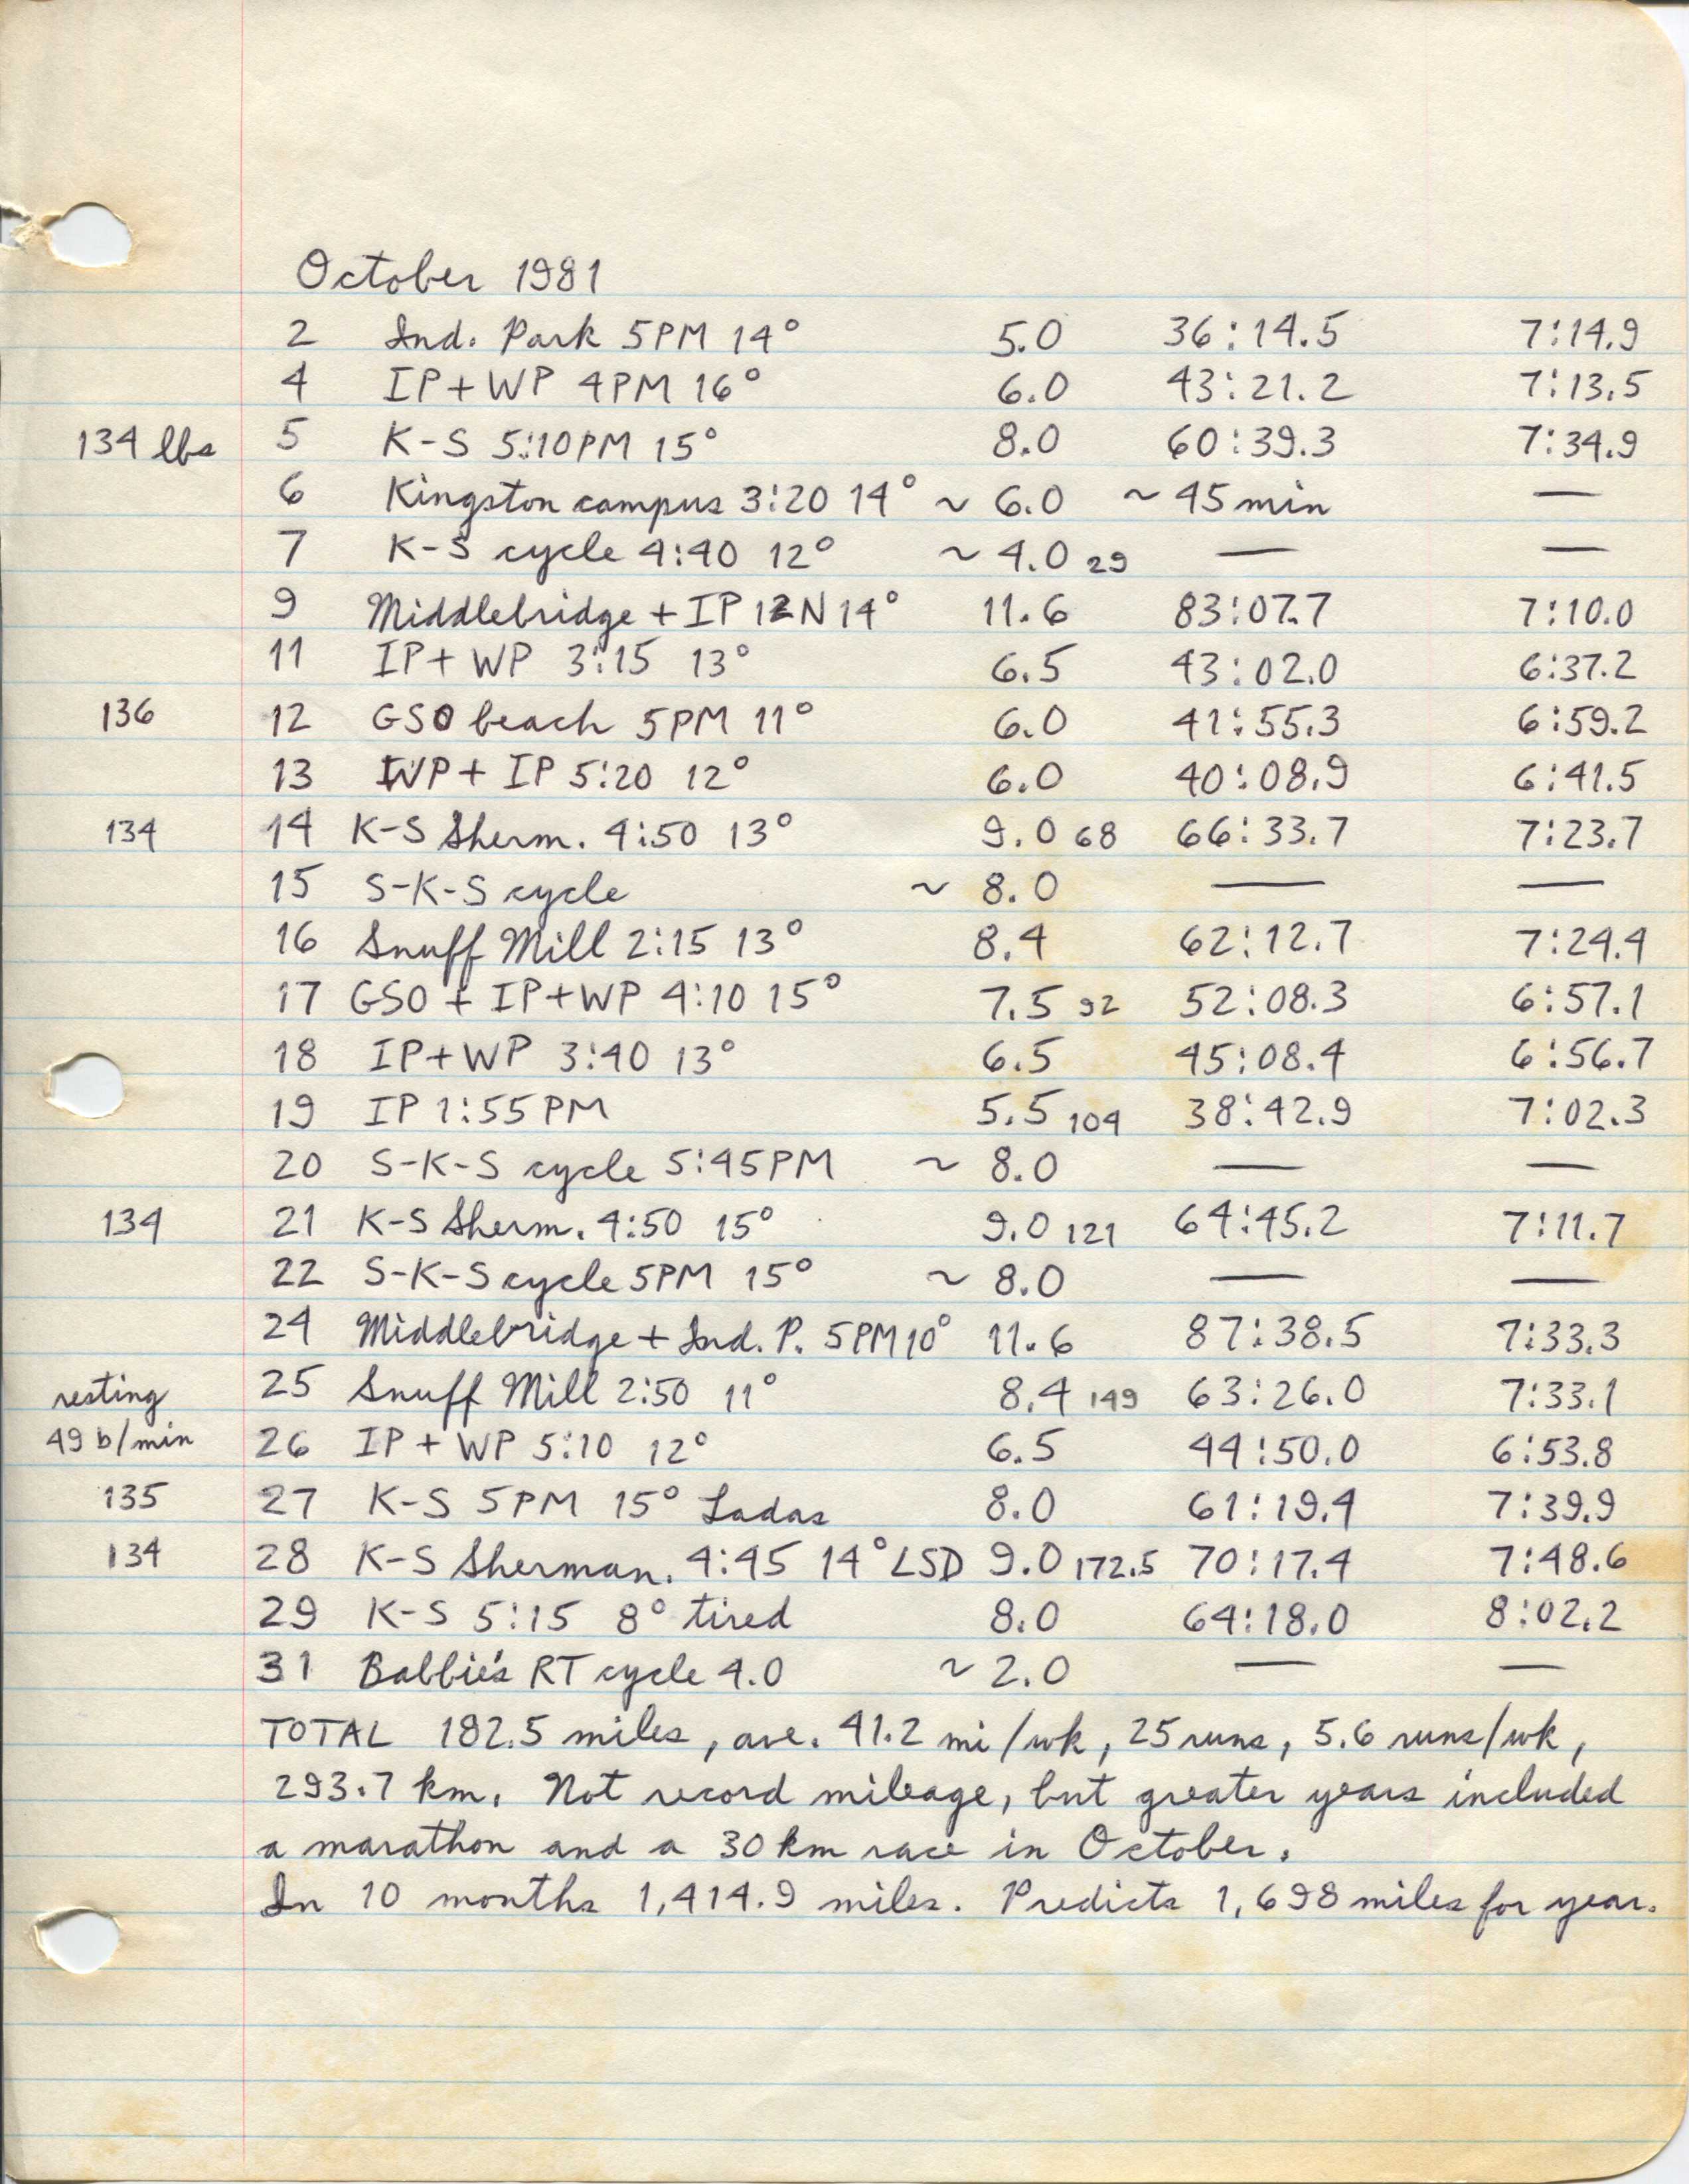 October 1981
2 Ind. Park 5PM 14° 5.0 36:14.5 7:14.9
4 IP+WP 4PM 16° 6.0 43:21.2 7:13.5
134 lbs 5 K-S 5:10PM 15° 8.0 60:39.3 7:34.9
6 Kingston campus 3:20 14° ~ 6.0 ~ 45 min —
7 K-S cycle 4:40 12° ~ 4.0 29 — —
9 Middlebridge + IP 12N 14° 11.6 83:07.7 7:10.0
11 IP+ WP 3:15 13° 6.5 43:02.0 6:37.2
136 12 GSO beach 5PM 11° 6.0 41:55.3 6:59.2
13 WP+ IP 5:20 12° 6.0 40:08.9 6:41.5
134 14 K-S Sherm. 4:50 13° 9.0 68 66:33.7 7:23.7
15 S-K-S cycle ~ 8.0 — —
16 Snuff Mill 2:15 13° 8.4 62:12.7 7:24.4
17 GSO + IP+WP 4:10 15° 7.5 92 52:08.3 6:57.1
18 IP+WP 3:40 13° 6.5 45:08.4 6:56.7
19 IP 1:55PM 5.5 104 38:42.9 7:02.3
20 S-K-S cycle 5:45PM ~ 8.0 — —
134 21 K-S Sherm. 4:50 15° 9.0 121 64:45.2 7:11.7
22 S-K-S cycle 5PM 15° ~ 8.0 — —
24 Middlebridge + Ind. P. 5PM 10° 11.6 87:38.5 7:33.3
resting 25 Snuff Mill 2:50 11° 8.4 149 63:26.0 7:33.1
49 b/min 26 IP + WP 5:10 12° 6.5 44:50.0 6:53.8
135 27 K-S 5PM 15° Ladas 8.0 61:19.4 7:39.9
134 28 K-S Sherman. 4:45 14° LSD 9.0 172.5 70:17.4 7:48.6
29 K-S 5:15 8° tired 8.0 64:18.0 8:02.2
31 Babbie's RT cycle 4.0 ~ 2.0 — —
TOTAL 182.5 miles, ave. 41.2 mi/wk, 25 runs, 5.6 runs/wk,
293.7 km. Not record mileage, but greater years included
a marathon and a 30 km race in October.
In 10 months 1,414.9 miles. Predicts 1,698 miles for year.